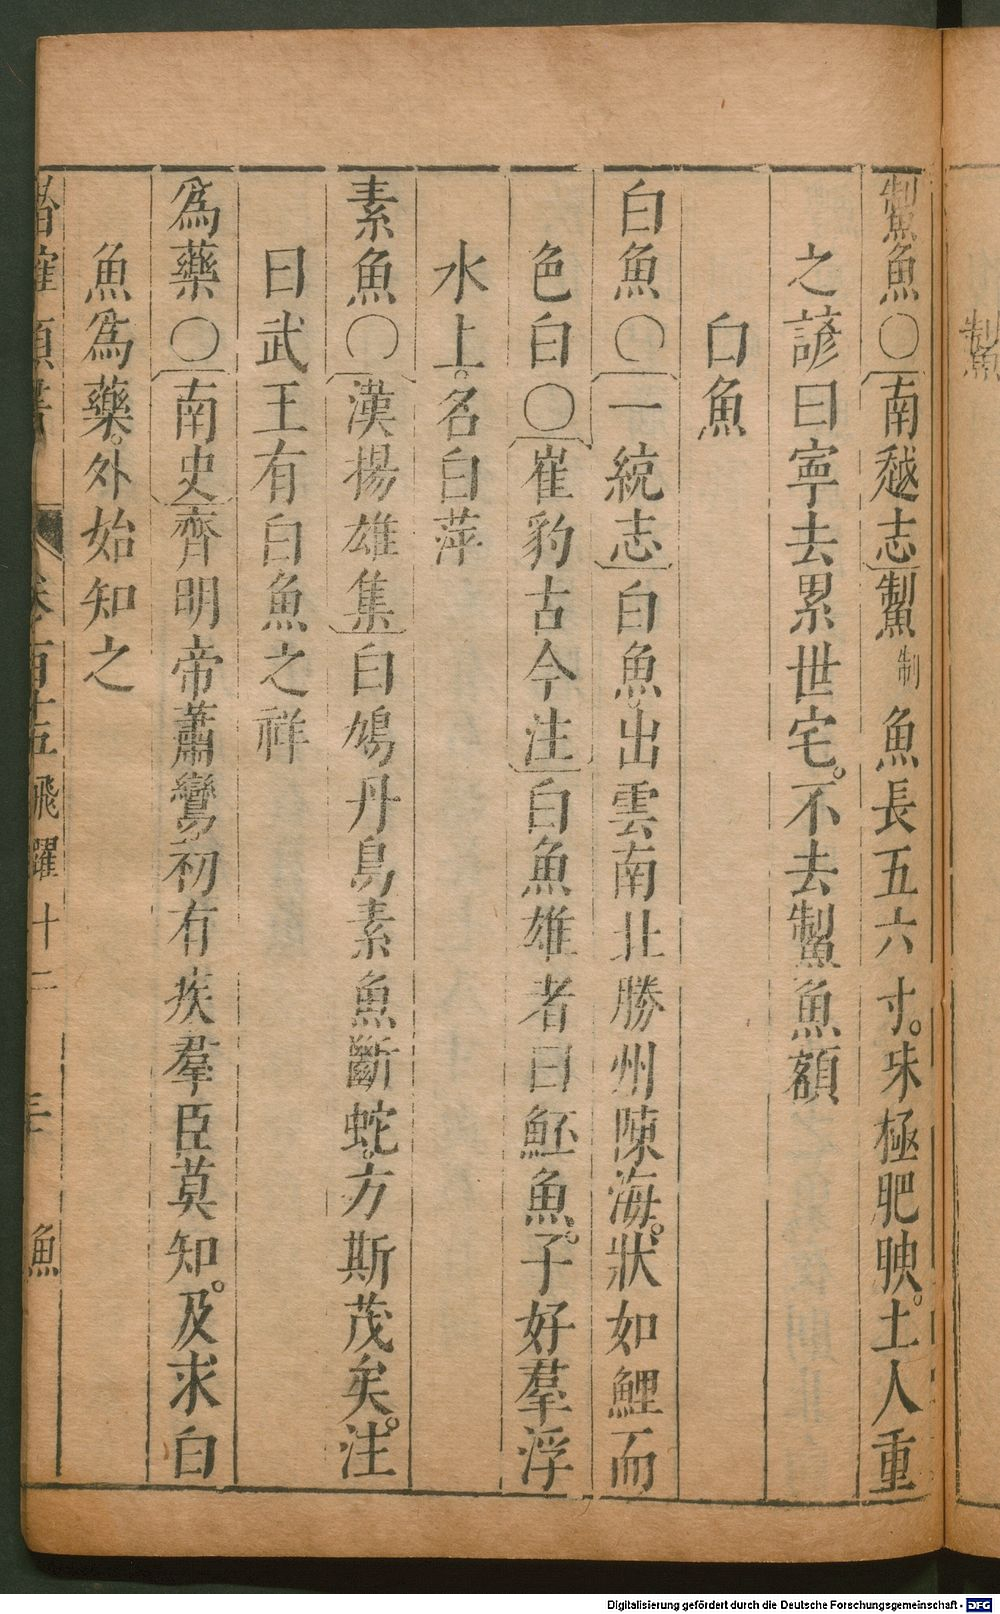 鮆
鮆魚〇南越志鮆制魚長五六寸。味極肥腴。土人重
之諺曰寧去累世宅。不去鮆魚額
白魚
白魚〇一統志白魚。出雲南北勝州陳海。狀如鯉而
色白〇崔豹古今注白魚雄者曰魾魚。子好羣浮
水上。名白萍
素魚〇漢揚雄集白鳩丹烏素魚斷蛇。方斯茂矣。注
曰武王有白魚之祥
為藥〇南史齊明帝蕭鸞初有疾羣臣莫知。及求白
魚爲藥。外始知之
卷百十五飛躍十二 魚
Digitalisierung gefördert durch die Deutsche Forschungsgemeinschaft - DFG